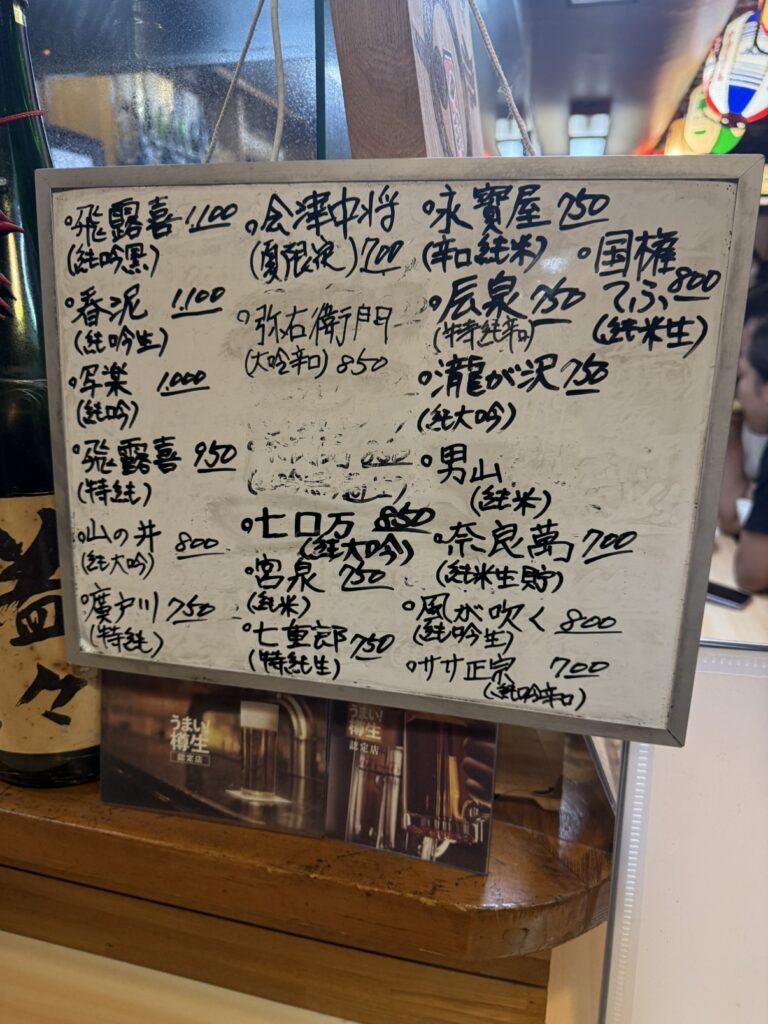 ・飛露喜 1,100
(純吟黒)
・春泥 1,100
(純吟生)
・写楽 1,000
(純吟)
・飛露喜 950
(特純)
・山の井 800
(純大吟)
・廣戸川 750
(特純)
・会津中将
(夏限定) 700
・弥右衛門
(大吟辛口) 850
・七ロ万 850
(純大吟)
・宮泉 750
(純米)
・七重郎 750
(特純生)
・永寶屋 750
(辛口純米)
・辰泉 750
(特純辛口)
・瀧が沢 750
(純大吟)
・男山
(純米)
・奈良萬 700
(純米生貯)
・風が吹く 800
(純吟生)
・ササ正宗 700
(純吟辛口)
・国権
てふ 800
(純米生)
うまい!
樽生
認定店
うまい!
樽生
認定店
々